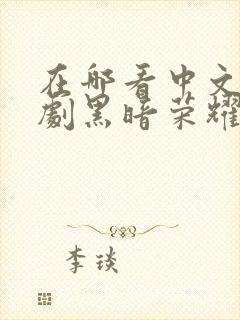 在哪看中文
劇黑暗荣耀
李琰